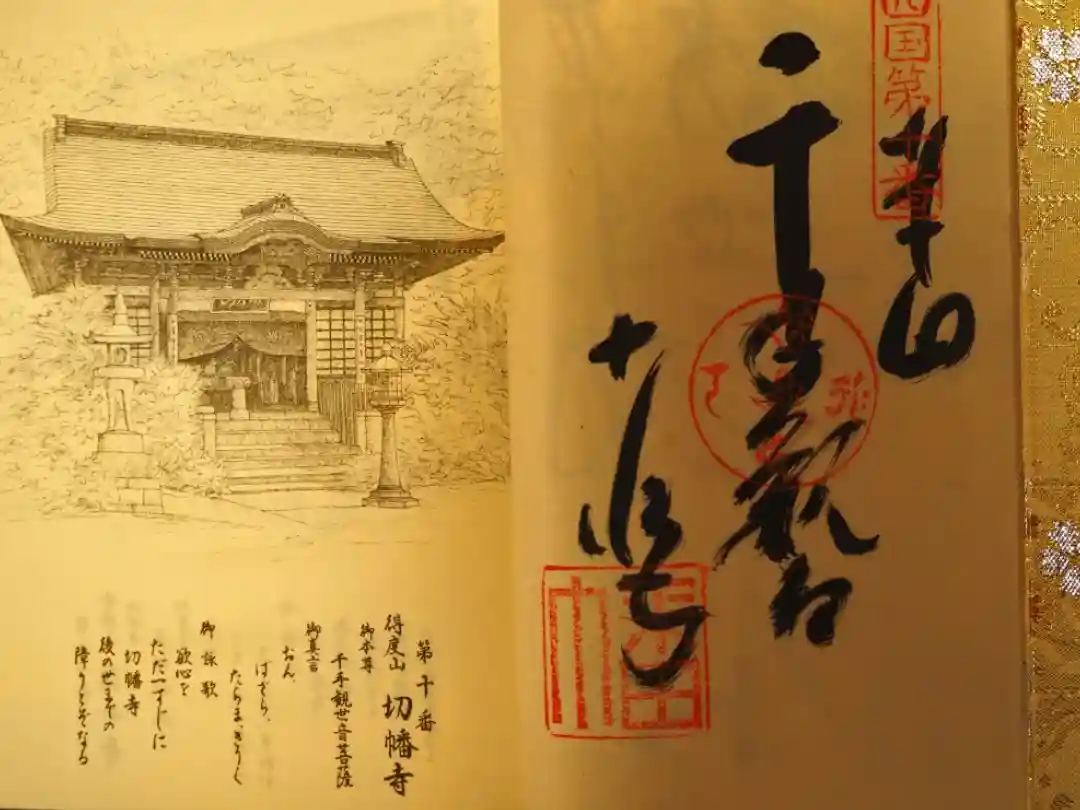 四国第十番
奉拝
切幡寺
第十番
得度山 切幡寺
御本尊
千手観世音菩薩
御真言
おん、
ばさら、
たらま、きりく
御詠歌
欲心を
ただ一すじに
切幡寺
後の世までの
障りとぞなる